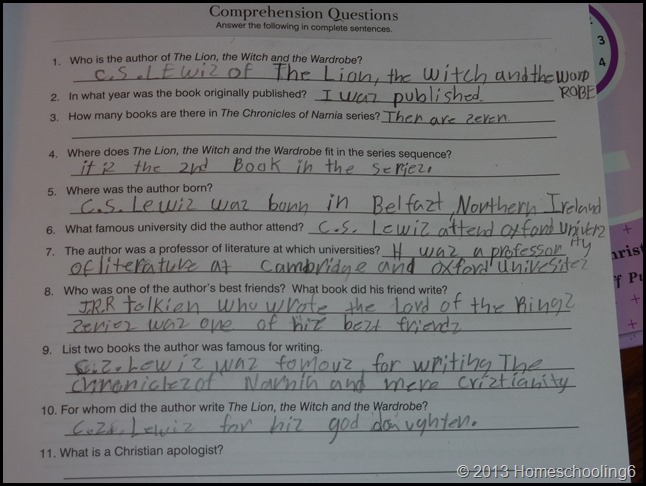 Comprehension Questions
Answer the following in complete sentences.
3
4
1. Who is the author of The Lion, the Witch and the Wardrobe?
C.S. LEwiz of The Lion, the witch and the WORD
ROBE
2. In what year was the book originally published? I waz published.
3. How many books are there in The Chronicles of Narnia series? Ther are zeven.
4. Where does The Lion, the Witch and the Wardrobe fit in the series sequence?
it iz the 2nd Book in the Seriez.
5. Where was the author born?
C.S. Lewiz waz bonn in Belfazt, Northern Ireland
6. What famous university did the author attend? C.S. Lewiz attend oxford univerz
ity
7. The author was a professor of literature at which universities? H waz a professor
of literature at Cambridge and oxford univesitez
8. Who was one of the author's best friends? What book did his friend write?
J.R.R tolkien who wrote the Lord of the Ringz
zeriez waz one of hiz bezt friendz
9. List two books the author was famous for writing.
C.z. Lewiz waz fomouz for writing The
Chroniclez of Narnia and mere Criztianity
10. For whom did the author write The Lion, the Witch and the Wardrobe?
Lewiz for hiz god daughter.
11. What is a Christian apologist?
© 2013 Homeschooling6